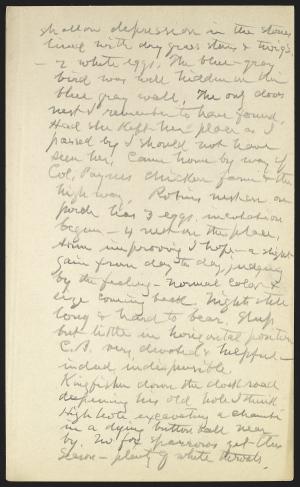 shallow depression in the stones
lined with dry grass stems & twigs
- 2 white eggs, The blue-gray
bird was well hidden on the
blue gray wall, The only doves
nest I remember to have found,
Had she kept her place as I
passed by I should not have
seen her, Came home by way of
Col, Paynes chicken farm & the
high way, Robins nest on
porch has 3 eggs, incubation
begun - 4 nests on the place,
Arm improving I hope - a slight
gain from day to day, judging
by the feeling - normal color &
size coming back. Nights still
long & hard to bear, Sleep
but little in horizontal position
C.B. very devoted & helpful -
indeed indispensible
Kingfisher down the dock road
deepening his old hole I think
High hole excavating a chamber
in a dying button ball near
by. No fox sparrows yet this
season - plenty of white throats,